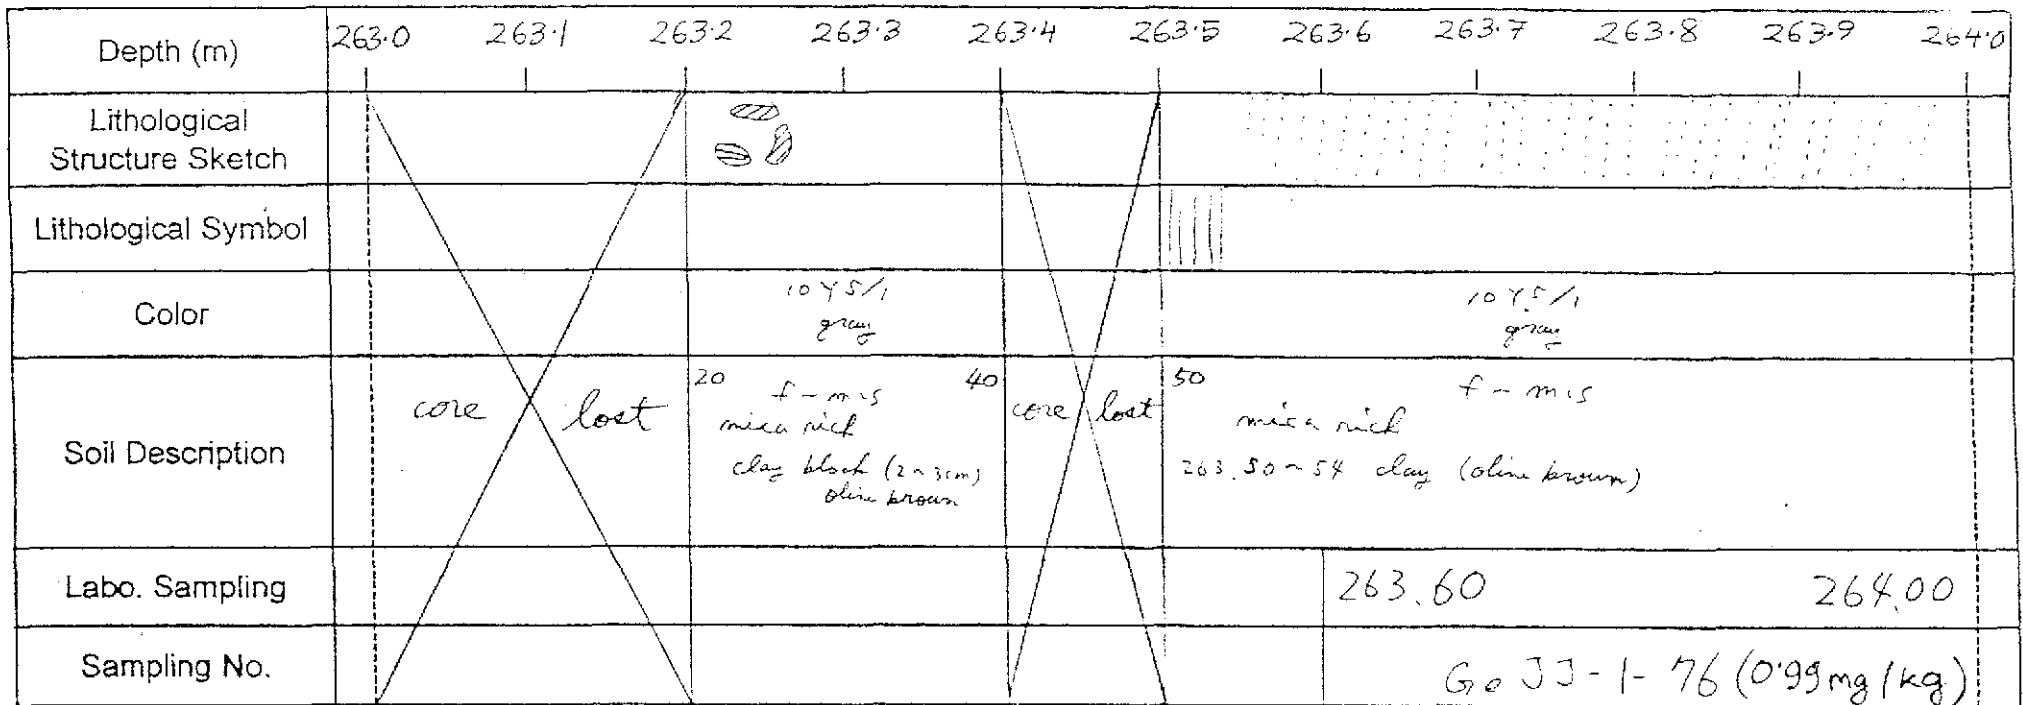 Depth (m) 263.0 263.1 263.2 263.3 263.4 263.5 263.6 263.7 263.8 263.9 264.0
Lithological
Structure Sketch
Lithological Symbol
Color
10Y5/1
gray
10Y5/1
gray
Soil Description
core lost
20 40
f-m.s
mica rich
clay block (2~3cm)
olive brown
core lost
50
f-m.s
mica rich
263.50~54 clay (olive brown)
Labo. Sampling
263.60 264.00
Sampling No.
Go JJ-1-76 (0.99mg/kg)